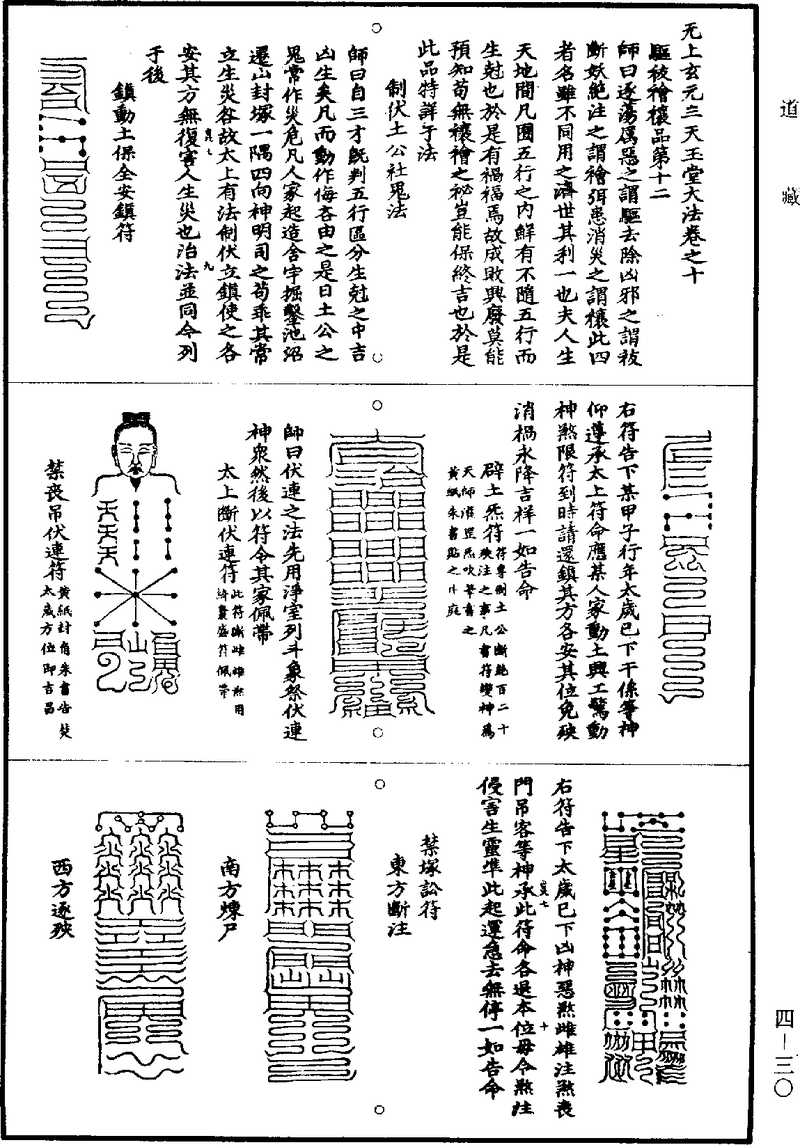 道藏
无上玄元三天玉堂大法卷之十
驅祓禬禳品第十二
師曰逐蕩厲惡之謂驅去除凶邪之謂祓
斷妖絶注之謂禬弭患消災之謂禳此四
者名雖不同用之濟世其利一也夫人生
天地間凡囿五行之内鮮有不隨五行而
生尅也於是有禍福焉故成敗興廢莫能
預知苟無禳禬之秘豈能保終吉也於是
此品特詳于法
制伏土公社鬼法
師曰自三才既判五行區分生尅之中吉
凶生矣凡而動作悔吝由之是日土公之
鬼常作災危凡人家起造舍宇掘鑿池沼
遷山封塚一隅四向神明司之苟乖其常
立生災咎故太上有法制伏立鎮使之各
安其方無復害人生災也治法並同今列
于後
鎮動土保全安鎮符
右符告下某甲子行年太歲已下干係等神
仰遵承太上符命應某人家動土興工驚動
神煞限符到時請還鎮其方各安其位免殃
消禍永降吉祥一如告命
辟土炁符
符專制土公斷絶百二十
殃注之事凡書符變神爲
天師准罡炁吹筆書之
黄紙朱書貼之
師曰伏連之法先用淨室列斗象祭伏連
神衆然後以符令其家佩帶
太上斷伏連符
此符斷雌雄煞用
絳囊盛符佩帶
禁喪吊伏連符
黄紙封角朱書告焚
太歲方位即吉昌
右符告下太歲已下凶神惡煞雌雄注煞喪
門吊客等神承此符命各退本位毋令煞注
侵害生靈準此起運急去無停一如告命
禁塚訟符
東方斷注
南方煉尸
西方逐殃
四—三〇